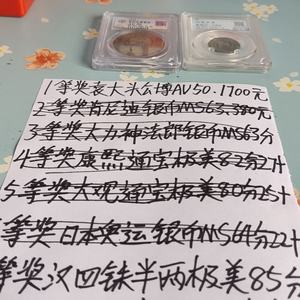 1等奖袁大头公博AU50.1700元
2等奖肯尼迪银币MS63.380元
3等奖大力神法郎银币MS63分
4等奖康熙通宝极美82分27
5等奖大观通宝极美80分25
等奖日本奥运银币MS64分22
等奖汉四铢半两极美85分